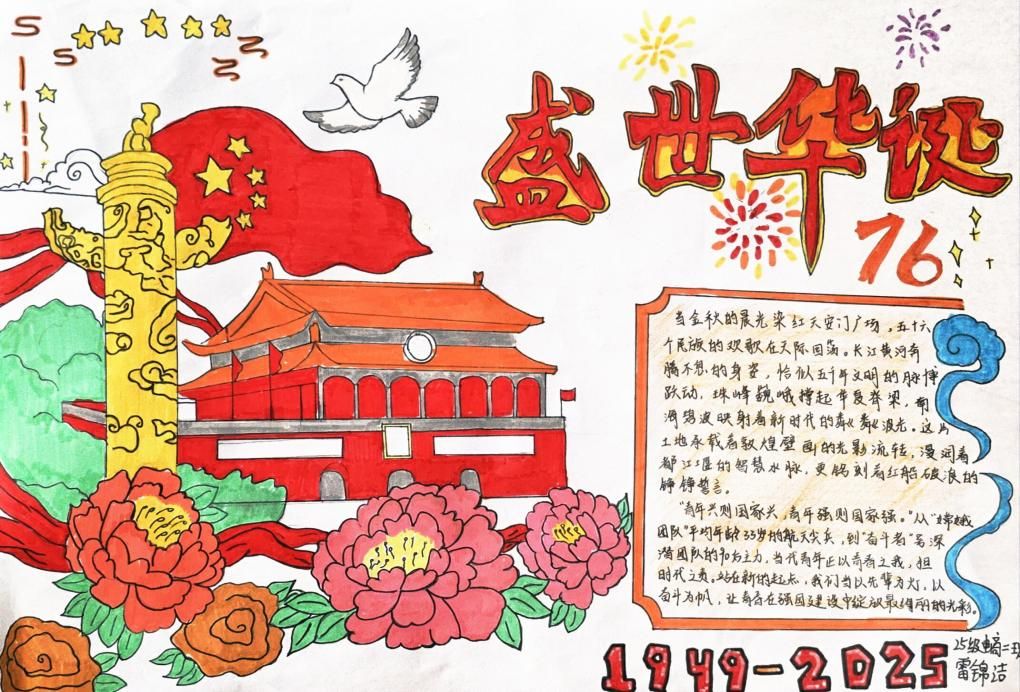 盛世华诞
76
当金秋的晨光染红天安门广场，五十六
个民族的欢歌在天际回荡。长江黄河奔
腾不息的身姿，恰似五千年文明的脉搏
跃动，珠峰巍峨撑起华夏脊梁，南
海碧波映射着新时代的粼粼波光。这片
土地承载着敦煌壁画的光影流转，浸润着
都江堰的智慧水脉，更镌刻着红船破浪的
铮铮誓言。
"青年兴则国家兴，青年强则国家强。"从"嫦娥
团队"平均年龄33岁的航天尖兵，到"奋斗者"号深
潜团队的90后主力，当代青年正以青春之我，担
时代之责。站在新的起点，我们当以先辈为灯，以
奋斗为帆，让青春在强国建设中绽放最绚丽的光彩。
1949-2025
25级 二班
雷锦洁